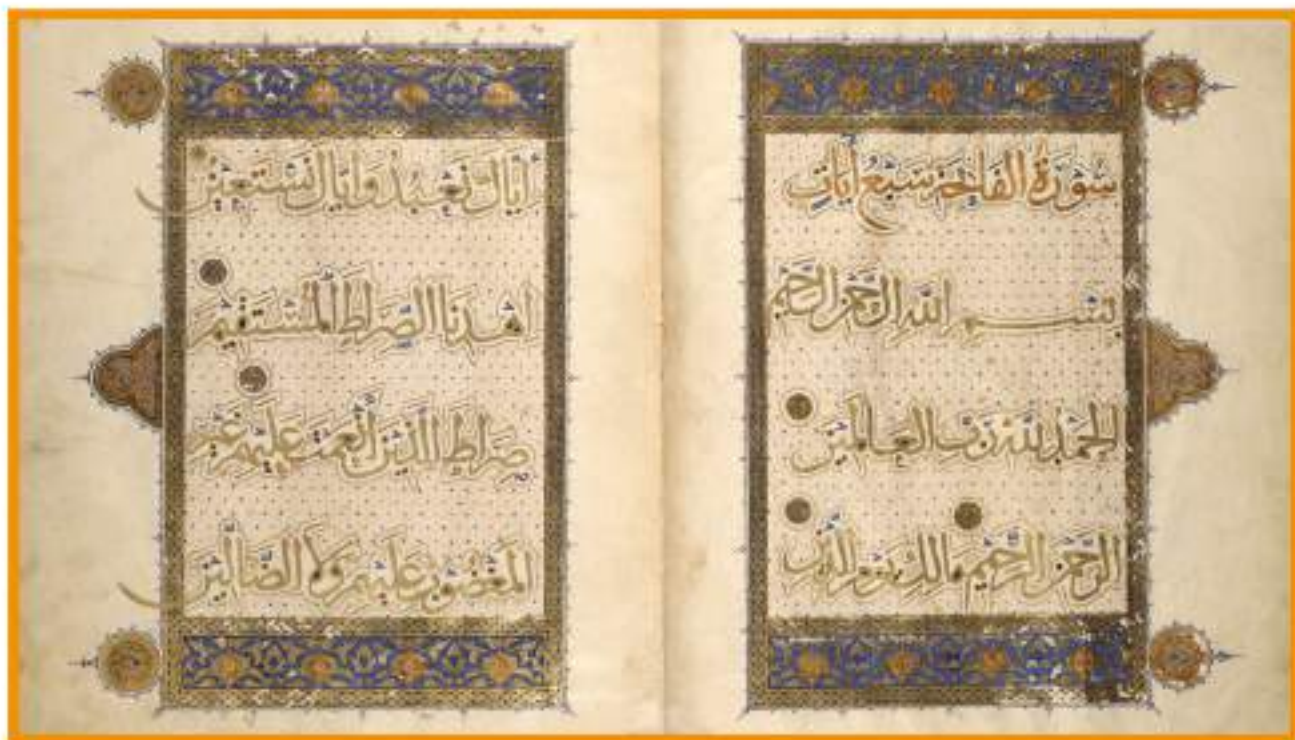 سُورَةُ الفَاتِحَةِ سَبْعُ آيَاتٍ
بِسْمِ اللَّهِ الرَّحْمَنِ الرَّحِيمِ
الحَمْدُ لِلَّهِ رَبِّ العَالَمِينَ
الرَّحْمَنِ الرَّحِيمِ مَالِكِ يَوْمِ الدِّينِ
إِيَّاكَ نَعْبُدُ وَإِيَّاكَ نَسْتَعِينُ
اهْدِنَا الصِّرَاطَ المُسْتَقِيمَ
صِرَاطَ الَّذِينَ أَنْعَمْتَ عَلَيْهِمْ غَيْرِ
المَغْضُوبِ عَلَيْهِمْ وَلَا الضَّالِّينَ